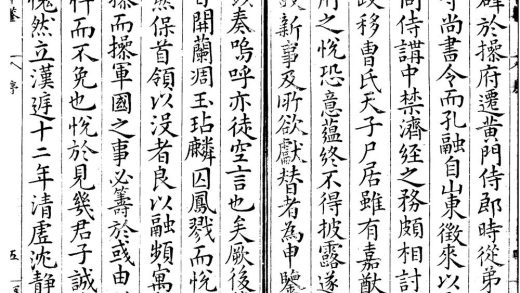 辟於操府遷黃門侍郎時從弟
守尚書令而孔融自山東徵來以
同侍講中禁濟經之務頗相討
政移曹氏天子尸居雖有嘉猷
用之悅恐意蘊終不得披露遂
新事及所欲獻替者為申鑒
奏嗚呼亦徒空言也矣厥後
開蘭凋玉玷麟囚鳳戮而悅
然保首領以没者良以融頻寓
操而操軍國之事必籌於彧由
忤而不免也悅於見幾君子誠
愧然立漢廷十二年清虛沈静
序 五